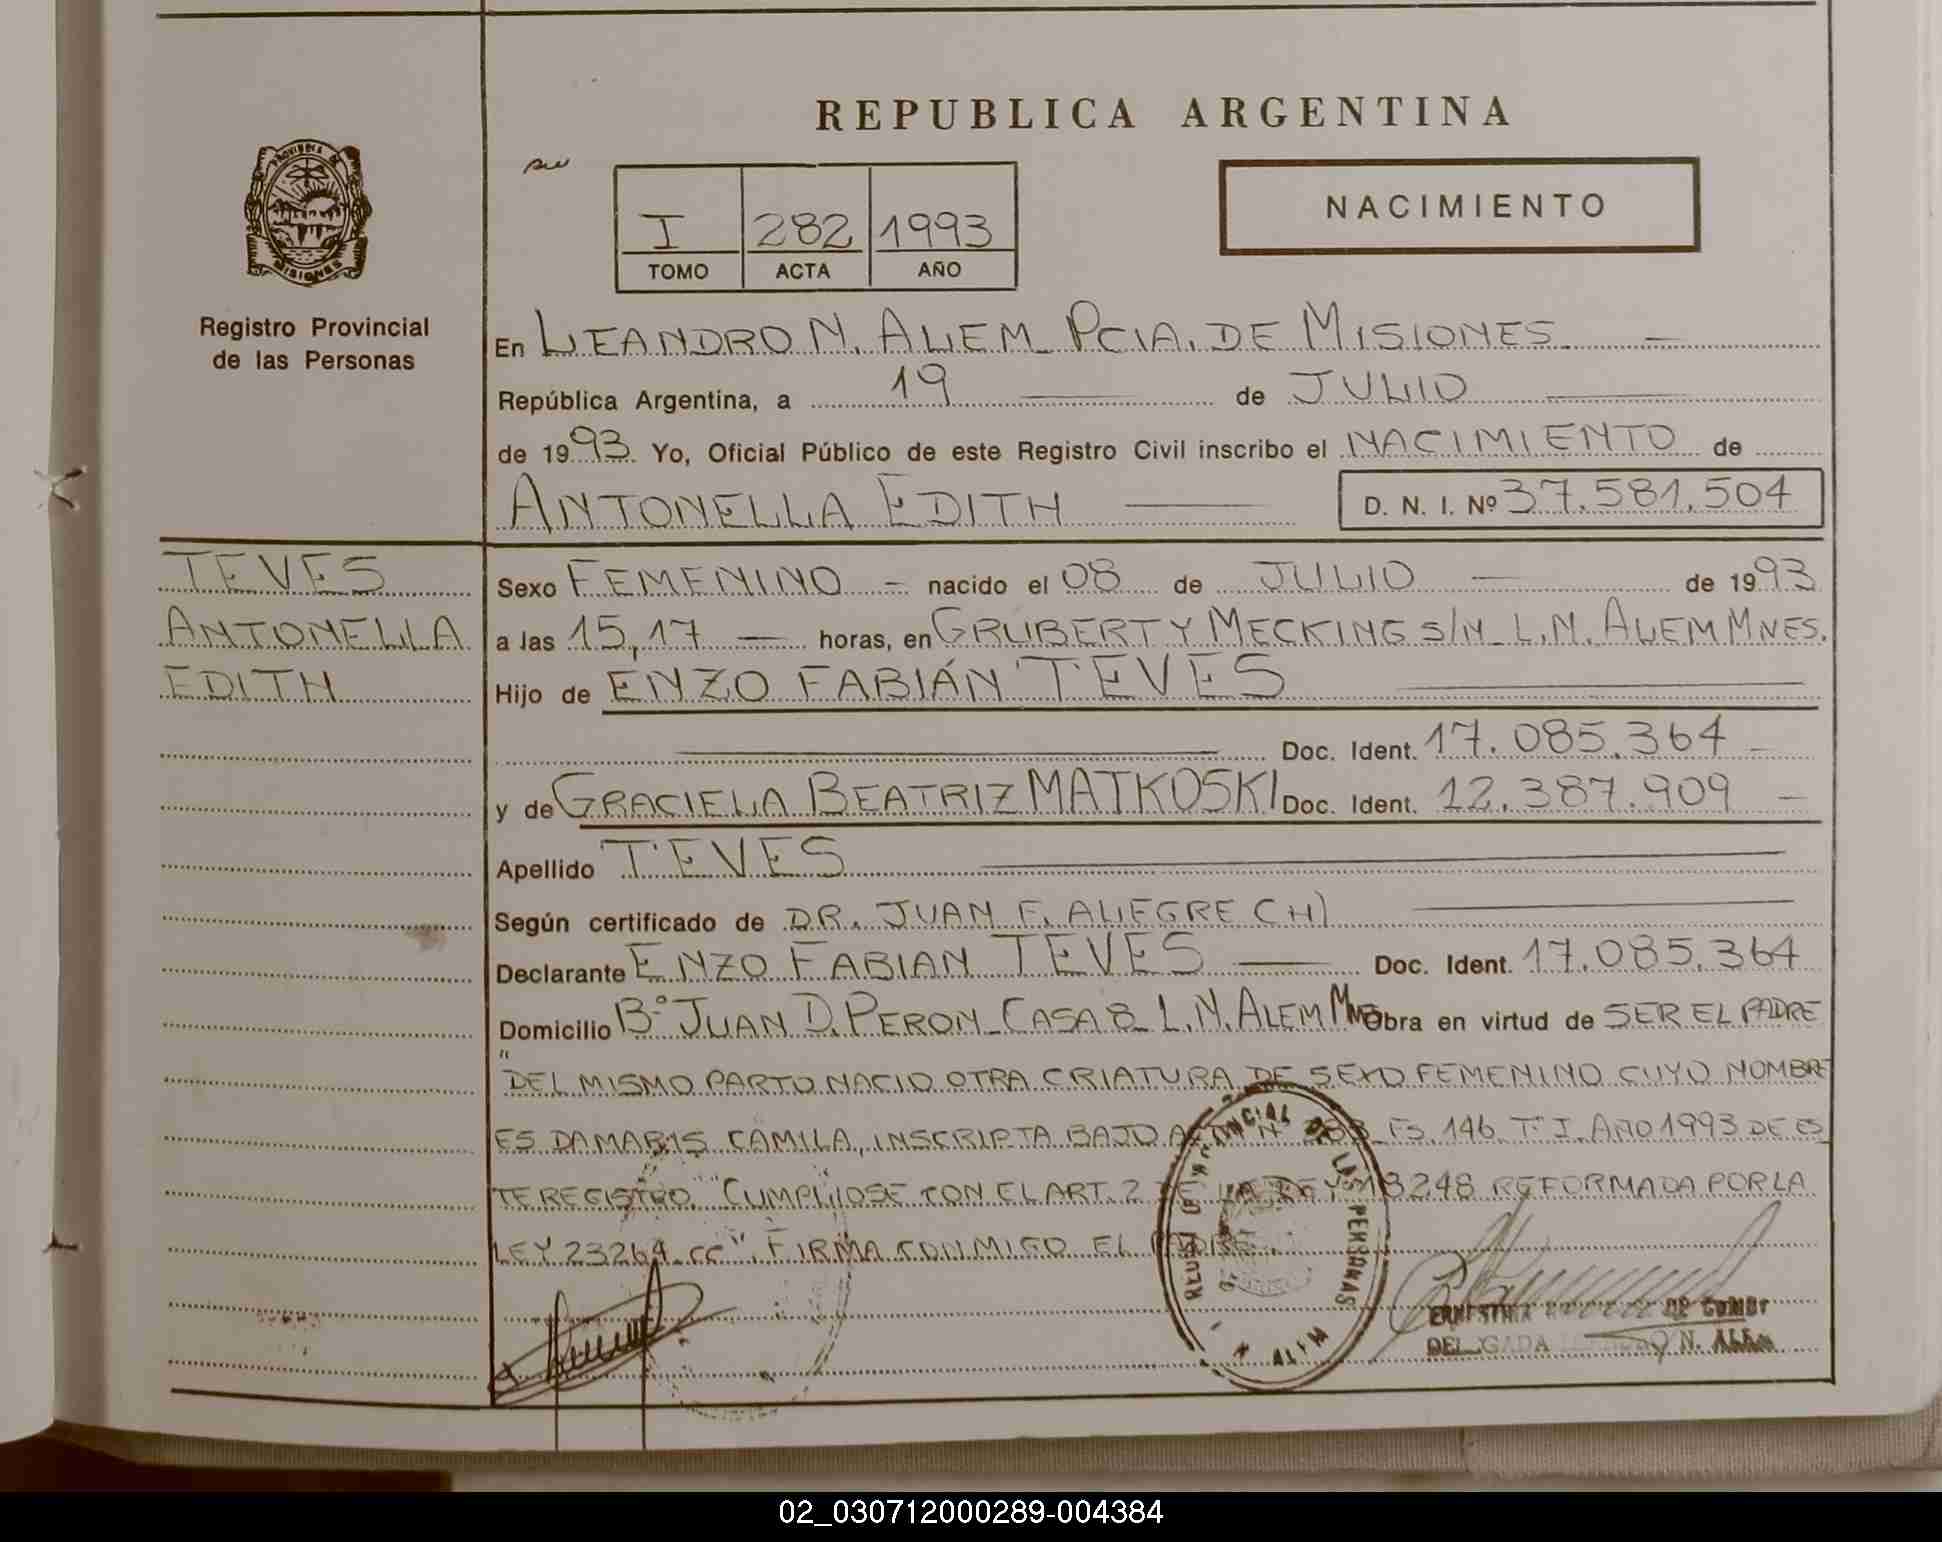 REPUBLICA ARGENTINA
PROVINCIA DE
MISIONES
Registro Provincial
de las Personas
I 282 1993
TOMO ACTA AÑO
NACIMIENTO
En LEANDRO N. ALEM PCIA. DE MISIONES
República Argentina, a 19 de JULIO
de 1993 Yo, Oficial Público de este Registro Civil inscribo el NACIMIENTO de
ANTONELLA EDITH D. N. I. Nº 37.581.504
TEVES
ANTONELLA
EDITH
Sexo FEMENINO nacido el 08 de JULIO de 1993
a las 15,17 horas, en GRUBERT Y MECKING S/N L.N. ALEM MNES.
Hijo de ENZO FABIÁN TEVES
Doc. Ident. 17.085.364
y de GRACIELA BEATRIZ MATKOSKI Doc. Ident. 12.387.909
Apellido TEVES
Según certificado de DR. JUAN F. ALEGRE CH)
Declarante ENZO FABIAN TEVES Doc. Ident. 17.085.364
Domicilio Bº JUAN D. PERON CASA 8 L.N. ALEM Mnes Obra en virtud de SER EL PADRE
"DEL MISMO PARTO NACIO OTRA CRIATURA DE SEXO FEMENINO CUYO NOMBRE
ES DAMARIS CAMILA, INSCRIPTA BAJO ACTA Nº 283 FS. 146 Tº I. AÑO 1993 DE ES
TE REGISTRO." "CUMPLIOSE CON EL ART. 2 DE LA LEY 18248 REFORMADA POR LA
LEY 23264 CC". FIRMA CONMIGO EL PADRE.
DE LAS PERSONAS
N. ALEM
ERNESTINA DE COMBI
DELEGADA LEANDRO N. ALEM
02_030712000289-004384